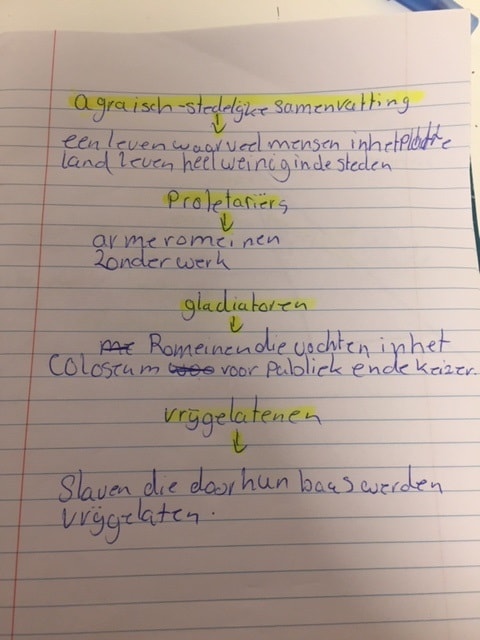 agraisch-stedelijke samenvatting
een leven waar veel mensen in het platte
land leven heel weinig in de steden
Proletariërs
arme romeinen
zonder werk
gladiatoren
Romeinen die vochten in het
Coloseum voor publiek en de keizer.
vrijgelatenen
Slaven die door hun baas werden
vrijgelaten.